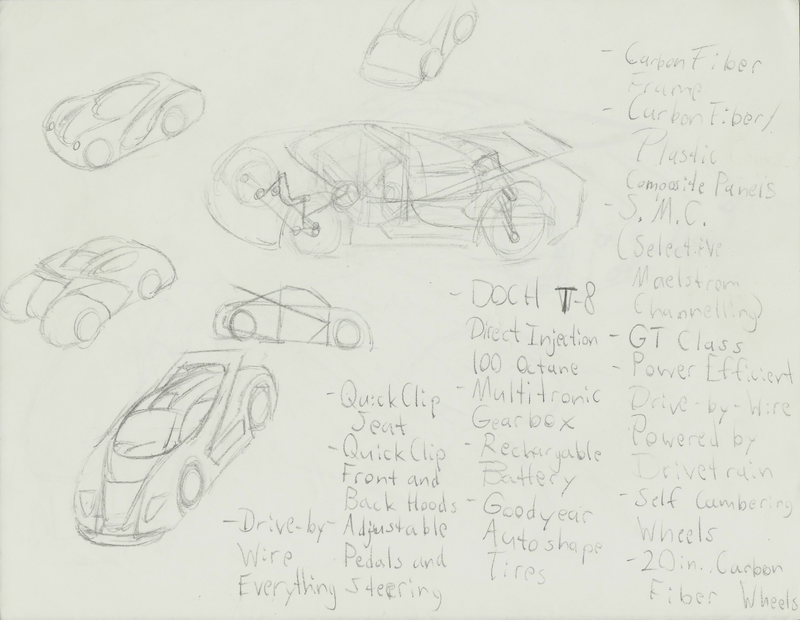 - Carbon Fiber
Frame
- Carbon Fiber/
Plastic
Composite Panels
- S. M. C.
(Selective
Maelstrom
Channelling)
- GT Class
- Power Efficient
Drive-by-Wire
Powered by
Drivetrain
- Self Cumbering
Wheels
- 20in. Carbon
Fiber Wheels
- DOCH V-8
Direct Injection
100 Octane
- Multitronic
Gearbox
- Rechargable
Battery
- Goodyear
Autoshape
Tires
- QuickClip
Seat
- QuickClip
Front and
Back Hoods
- Adjustable
Pedals and
Steering
- Drive-by-
Wire
Everything